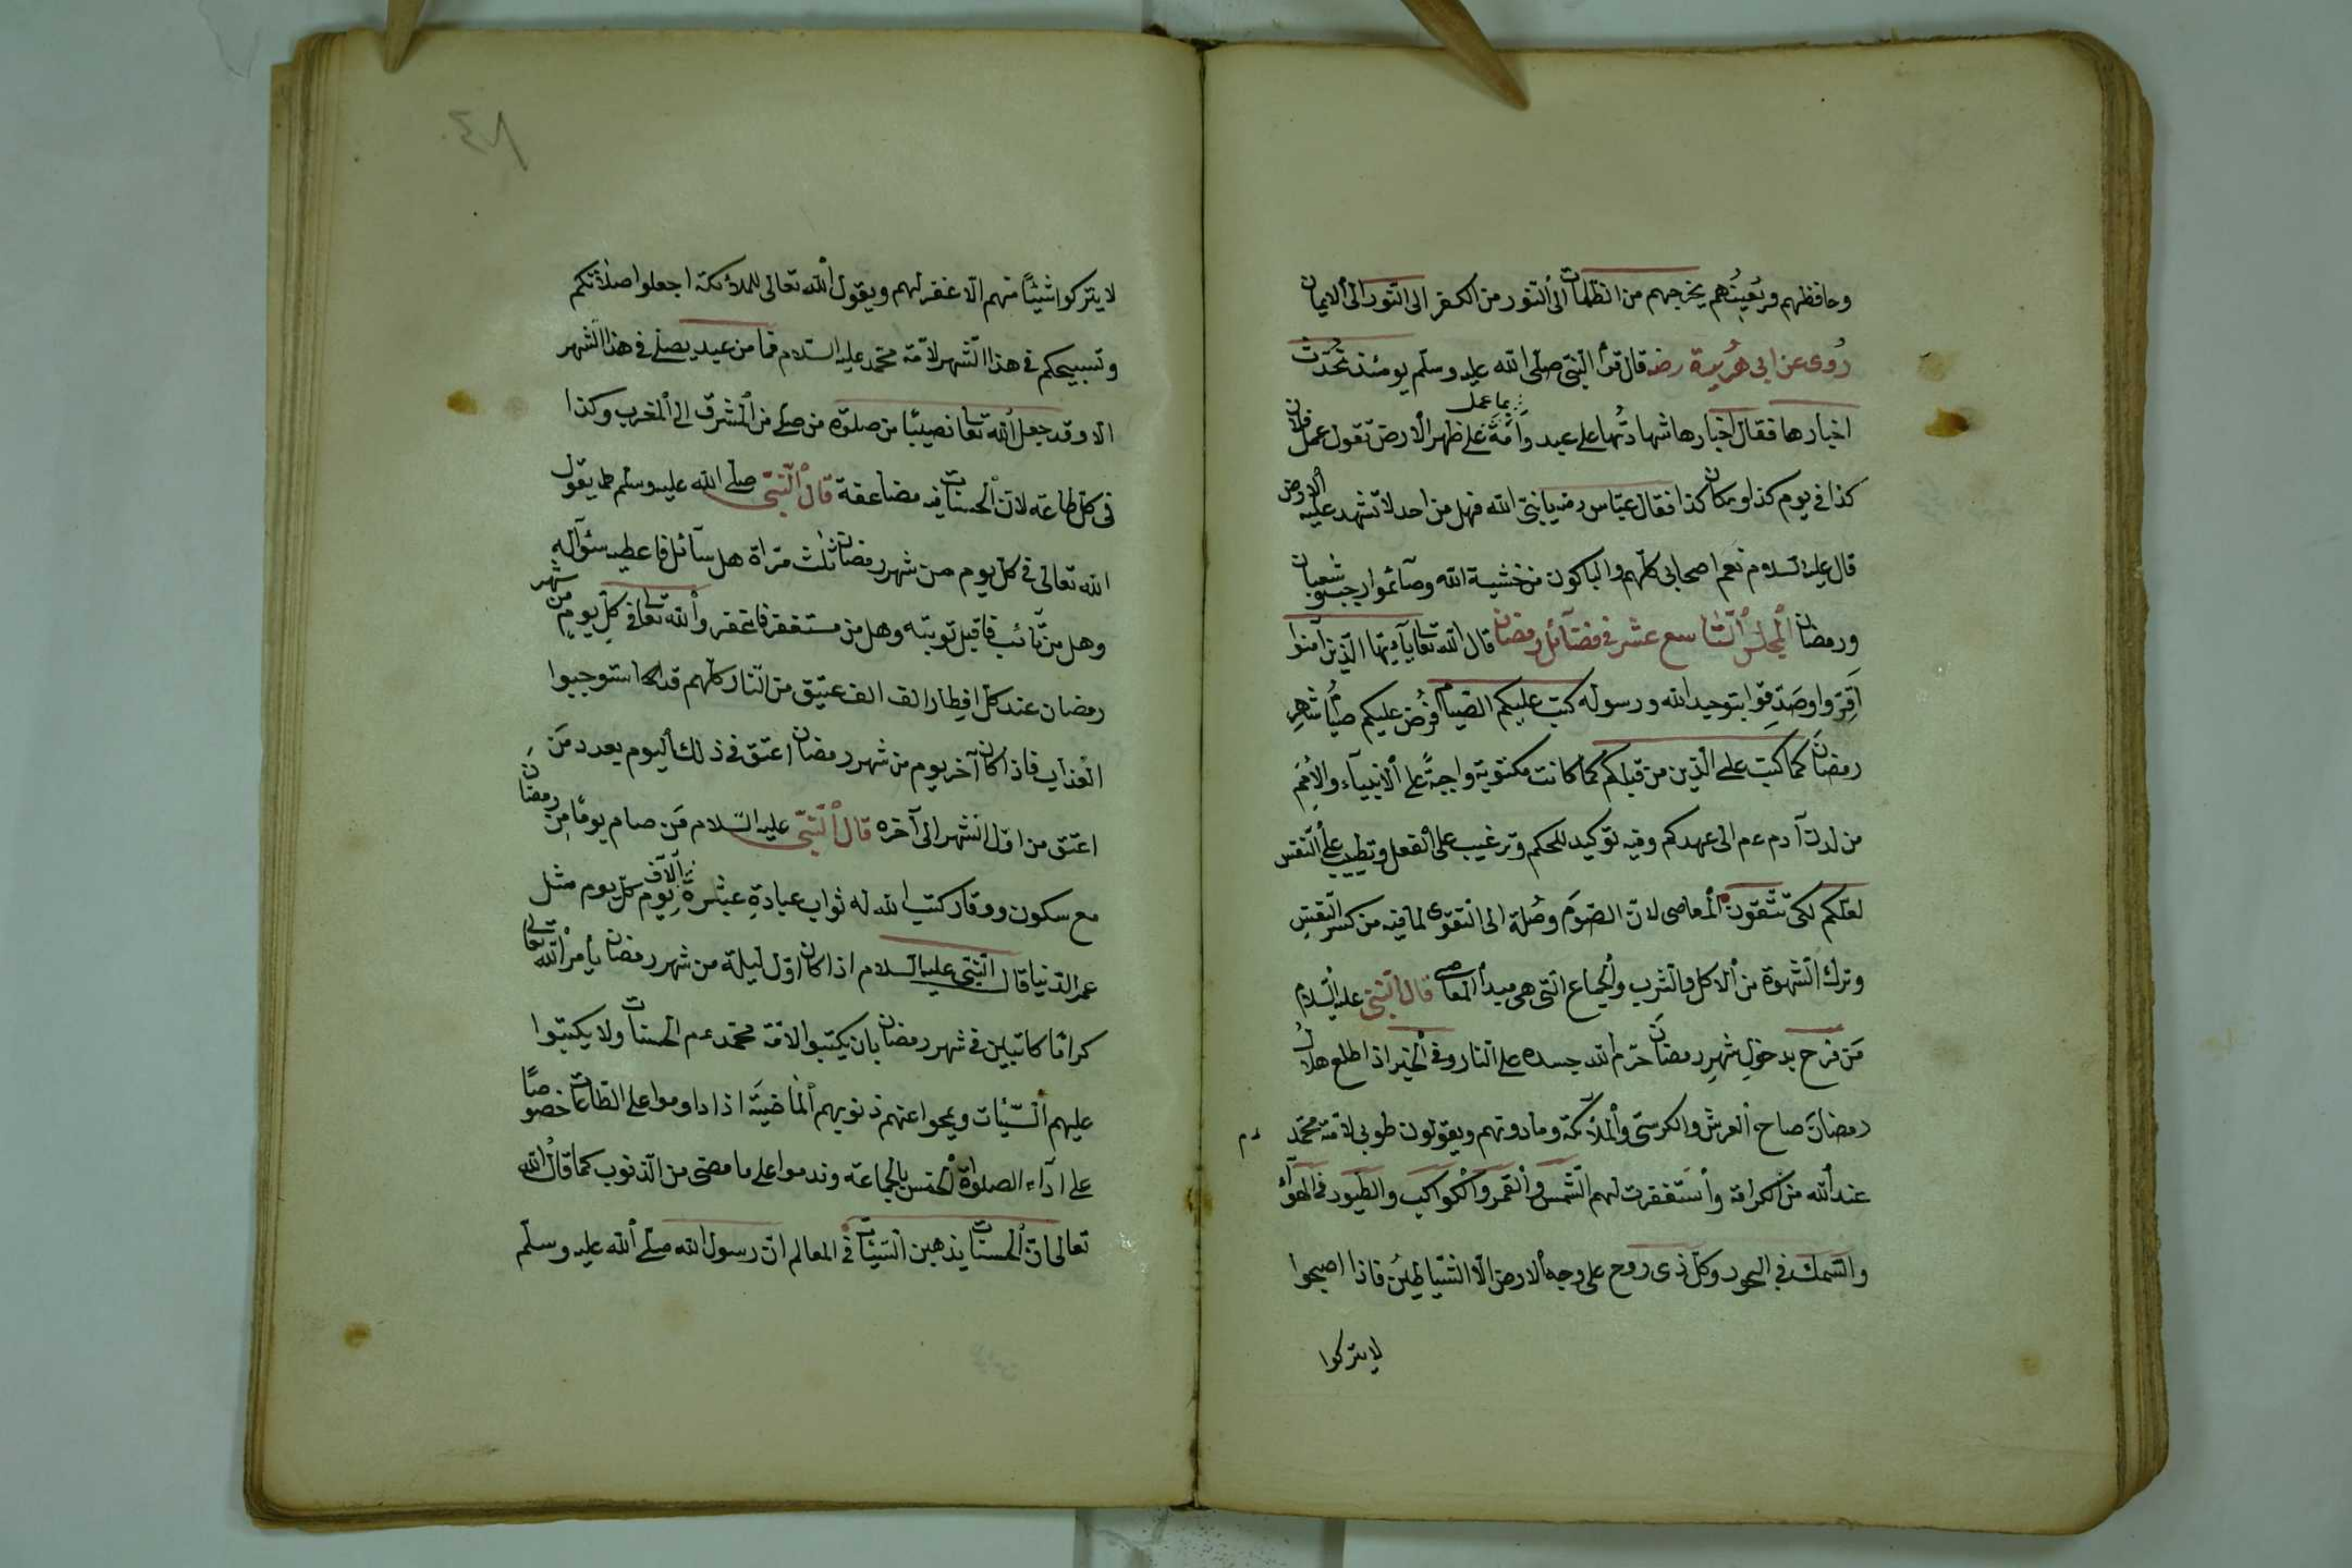 وحافظهم ومُعينُهم يخرجهم من الظلمات الى النور من الكفر الى النور الى الايمان
رُوى عن ابى هُريرة رضه قال قرأ النبى صلى الله عليه وسلم يومئذ تُحدّث
اخبارها فقال اخبارها شهادتُها على عبد وأمة بما عمل على ظهر الارض تقول عمل فلان
كذا فى يوم كذا ومكان كذا فقال عباس رضه يا نبى الله فهل من احد لا تشهد عليه الارض
قال عليه السلام نعم اصحابى كلهم والباكون من خشية الله وصآئموا رجب وشعبان
ورمضان المجلس التاسع عشر فى فضآئل رمضان قال الله تعالى يآءيّها الذين آمنوا
اَقِرّوا وصَدّقوا بتوحيد الله ورسوله كتب عليكم الصيام فُرض عليكم صيامُ شهر
رمضانَ كما كتب على الذين من قبلكم كما كانت مكتوبة واجبةً على الانبياء والاُمَمِ
من لدن آدم عم الى عهدكم وفيه توكيد للحكم وترغيب على الفعل وتطييب على النفس
لعلّكم لكى تتّقون المعاصى لانّ الصّومَ وصُلة الى التقوى لما فيه من كسر النفسِ
وترك الشهوة من الاكل والشرب والجماع التى هى مبدأ المعاصى قال النبى عليه السلام
مَن فرح بدخولِ شهرِ رمضانَ حرّم الله جسده على النار وفى الخبر اذا طلع هلالُ
رمضانَ صاح العرش والكرسىّ والملائكة وما دونهم ويقولون طوبى لامة محمّد عم
عند الله من الكرامة واستغفرت لهم الشمس والقمر والكواكب والطيور فى الهوآء
والسّمك فى البحور وكلّ ذى روح على وجه الارض الّا الشياطين فاذا اصبحوا
لا يتركوا
٨٤
لا يتركوا شيئًا منهم الّا غفر لهم ويقول الله تعالى للملائكة اجعلوا صلاتكم
وتسبيحكم فى هذا الشهر لامّة محمّد عليه السلام فما من عبد يصلى فى هذا الشهر
الا وقد جعل الله تعالى نصيبًا من صلوة من صلى من المشرق الى المغرب وكذا
فى كلّ طاعة لانّ الحسنات فيه مضاعفة قال النبىّ صلى الله عليه وسلم يقول
الله تعالى فى كلّ يوم من شهر رمضان ثلث مرّاة هل سآئل فاعطيه سئوآله
وهل من تآئب فاقبل توبته وهل من مستغفر فاغفر ولله تعالى فى كلّ يوم من شهر
رمضان عند كلّ افطار الف الف عتيق من النار كلهم قد استوجبوا
العذاب فاذا كان آخر يوم من شهر رمضان اعتق فى ذلك اليوم بعدد مَن
اعتق من اوّل الشهر الى آخره قال النّبىّ عليه السّلام مَن صام يومًا مِن رمضان
مع سكون ووقار كتب الله له ثواب عبادةِ عشرة آلاف يوم كلّ يوم مثل
عمر الدّنيا قال النّبى عليه السلام اذا كان اوّل ليلة من شهر رمضان يأمر الله تعالى
كرامًا كاتبين فى شهر رمضان بان يكتبوا لامّة محمّد عم الحسنات ولا يكتبوا
عليهم السّيّئات ويمحوا عنهم ذنوبهم الماضية اذا داوموا على الطاعات خصوصًا
على ادآء الصلواة الخمس بالجماعة وندموا على ما مضى من الذنوب كما قال الله
تعالى انّ الحسنات يذهبن السّيّئات فى المعالم انّ رسول الله صلّى الله عليه وسلّم